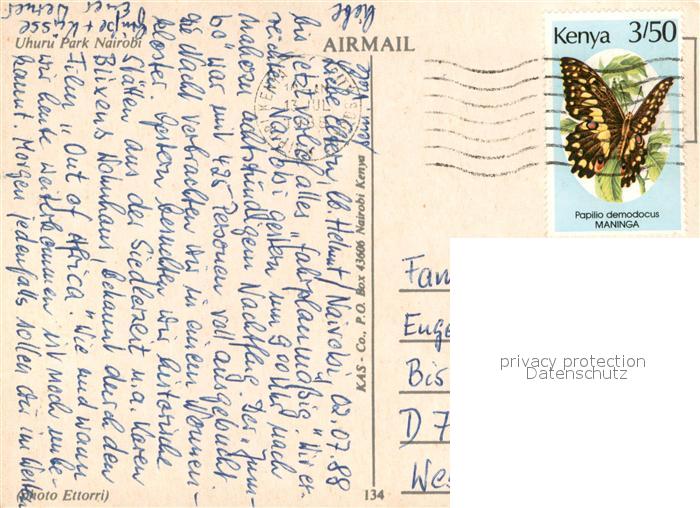 Uhuru Park Nairobi
AIRMAIL
Kenya 3/50
Papilio demodocus
MANINGA
Nairobi 02.07.88
Liebe Eltern, lb. Helmut,
bis jetzt lief alles "fahrplanmäßig". Wir er-
reichten Nairobi gestern um 9.00 Uhr nach
nahezu achtstündigem Nachtflug. Der "Jum-
bo" war mit 425 Personen voll ausgebucht.
die Nacht verbrachten wir in einem Nonnen-
kloster. Gestern besuchten wir historische
Stätten aus der Siedlerzeit u.a. Karen
Blixens Wohnhaus, bekannt durch den
Film "Out of Africa". Wie und wann
wir heute weiterkommen ist noch unbe-
kannt. Morgen jedenfalls sollen wir im Westen
Grüße + Küsse
Euer Werner
KAS - Co., P.O. Box 43606 Nairobi Kenya
(Photo Ettorri)
134
Fam
Euge
Bis
D 7
Wes
privacy protection
Datenschutz